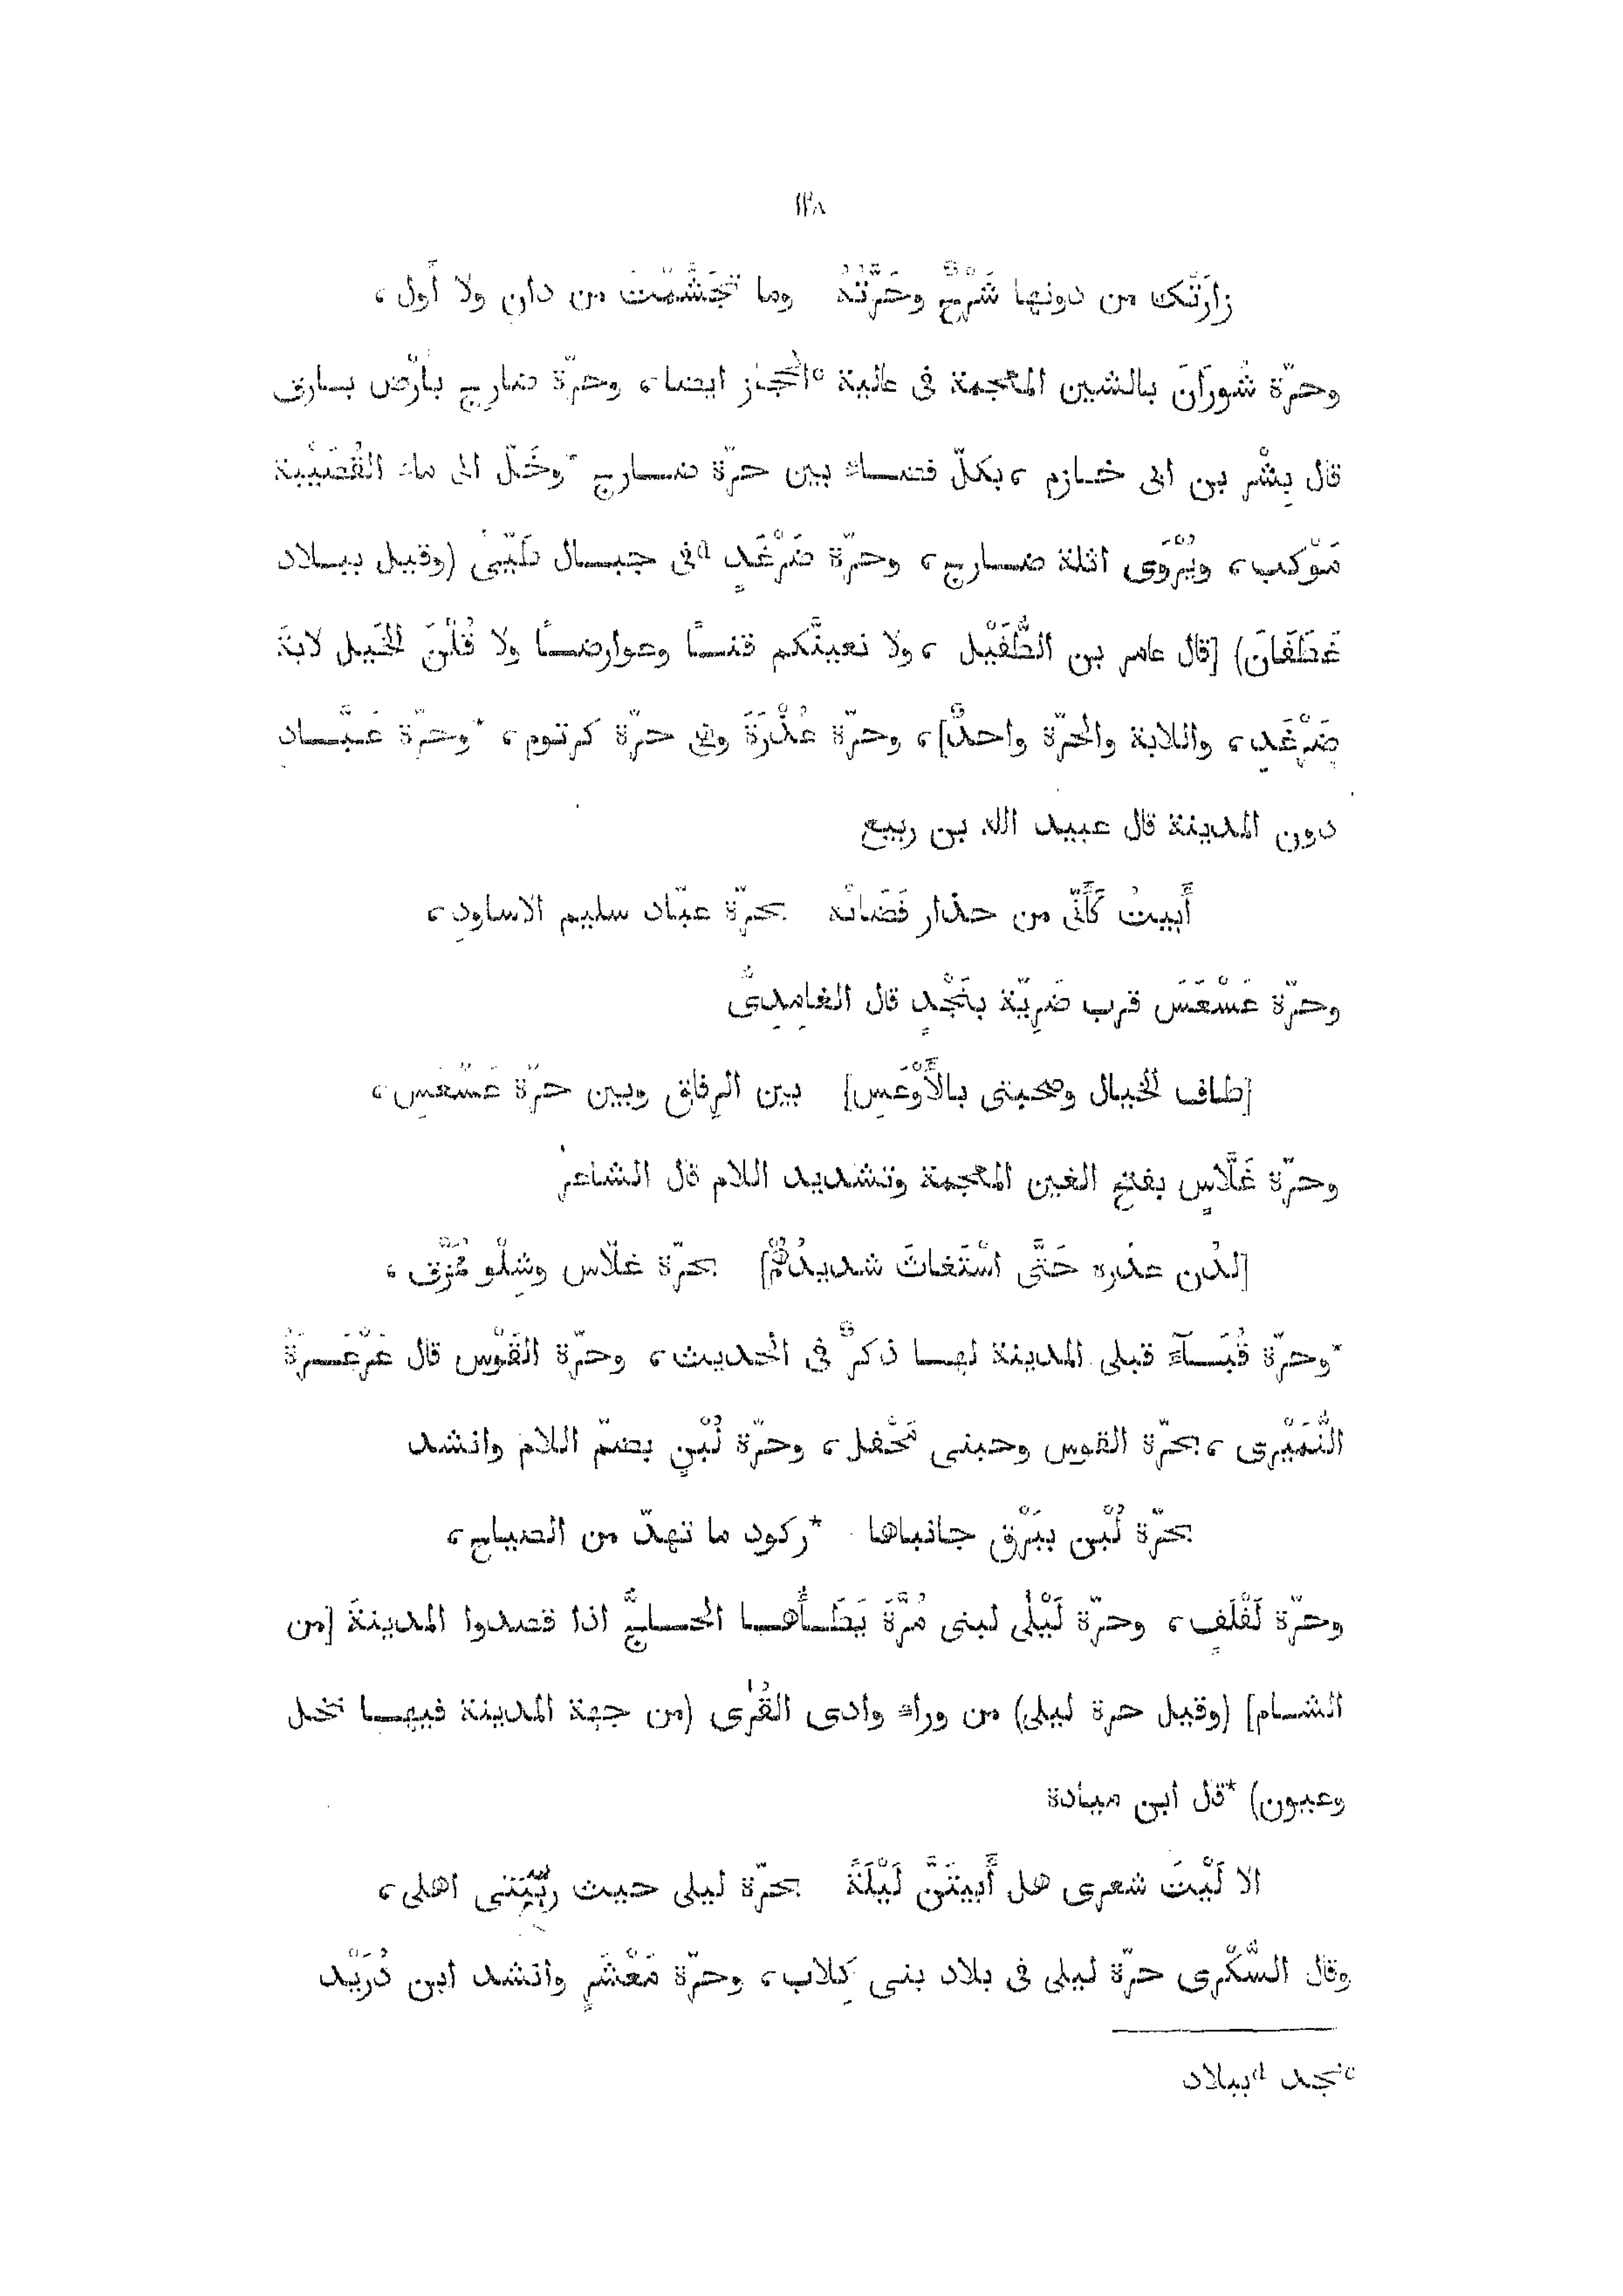 ١٢٨
زارَتْك من دونها شَرْجٌ وحَرَّتُهُ وما تَجَشَّمْتَ من دان ولا أَول ،
وحرّة شُورَانَ بالشين المعجمة فى عالية ᶜالحجاز ايضا ، وحرّة ضارج بأَرْض بارق
قال بِشْر بن ابى خازم ، بكلّ فضاء بين حرّة ضارج *وخَلّ الى ماء القُصَيْبة
مَوْكب ، ويُرْوَى اثلة ضارج ، وحرّة ضَرْغَدٍ ᵈفى جبال طَيّىء (وقيل ببلاد
غَطَفَانَ) [قال عامر بن الطُّفَيْل ، ولا نعينَّكم قنًا وعوارضًا ولا قُلْنَ الخيل لابةَ
ضَرْغَدِ ، واللابة والحرّة واحدٌ] ، وحرّة عُذْرَةَ وهى حرّة كرتوم ، *وحرّة عَبَّاد
دون المدينة قال عبيد الله بن ربيع
أَبيتُ كَأَنّى من حذار قَضَائه بحرّة عبّاد سليم الاساودِ ،
وحرّة عَسْعَسَ قرب ضَرِيّة بنَجْدٍ قال الغامِدِىُّ
[طاف الخيال وصحبتى بالأَوْعَسِ] بين الرِفاق وبين حرّة عَسْعَسِ ،
وحرّة غَلَّاسٍ بفتح الغين المعجمة وتشديد اللام قال الشاعر
[لدُن غذره حَتَّى اسْتَغاثَ شديدُهُمْ] بحرّة غلّاس وشِلْو مُمَزَّق ،
*وحرّة قُبَآءَ قبلى المدينة لها ذكرٌ فى الحديث ، وحرّة القَوْس قال عَرْعَرَةُ
النُّمَيْرى ، بحرّة القوس وحبنى مَحْفل ، وحرّة لُبْنٍ بضمّ اللام وانشد
بحرّة لُبْن يبَرْق جانباها *ركود ما تهدّ من الصباح ،
وحرّة لَفْلَفٍ ، وحرّة لَيْلَى لبنى مُرَّةَ يَطَأُها الحاجُّ اذا قصدوا المدينةَ [من
الشام] (وقيل حرة ليلى) من وراء وادى القُرَى (من جهة المدينة فيها نخل
وعيون) *قال ابن ميادة
الا لَيْتَ شعرى هل أَبيتَنَّ لَيْلَةً بحرّة ليلى حيث ربّتنى اهلى ،
وقال السُّكّرى حرّة ليلى فى بلاد بنى كِلاب ، وحرّة مَعْشَرٍ وانشد ابن دُرَيْد
ᶜنجد ᵈببلاد